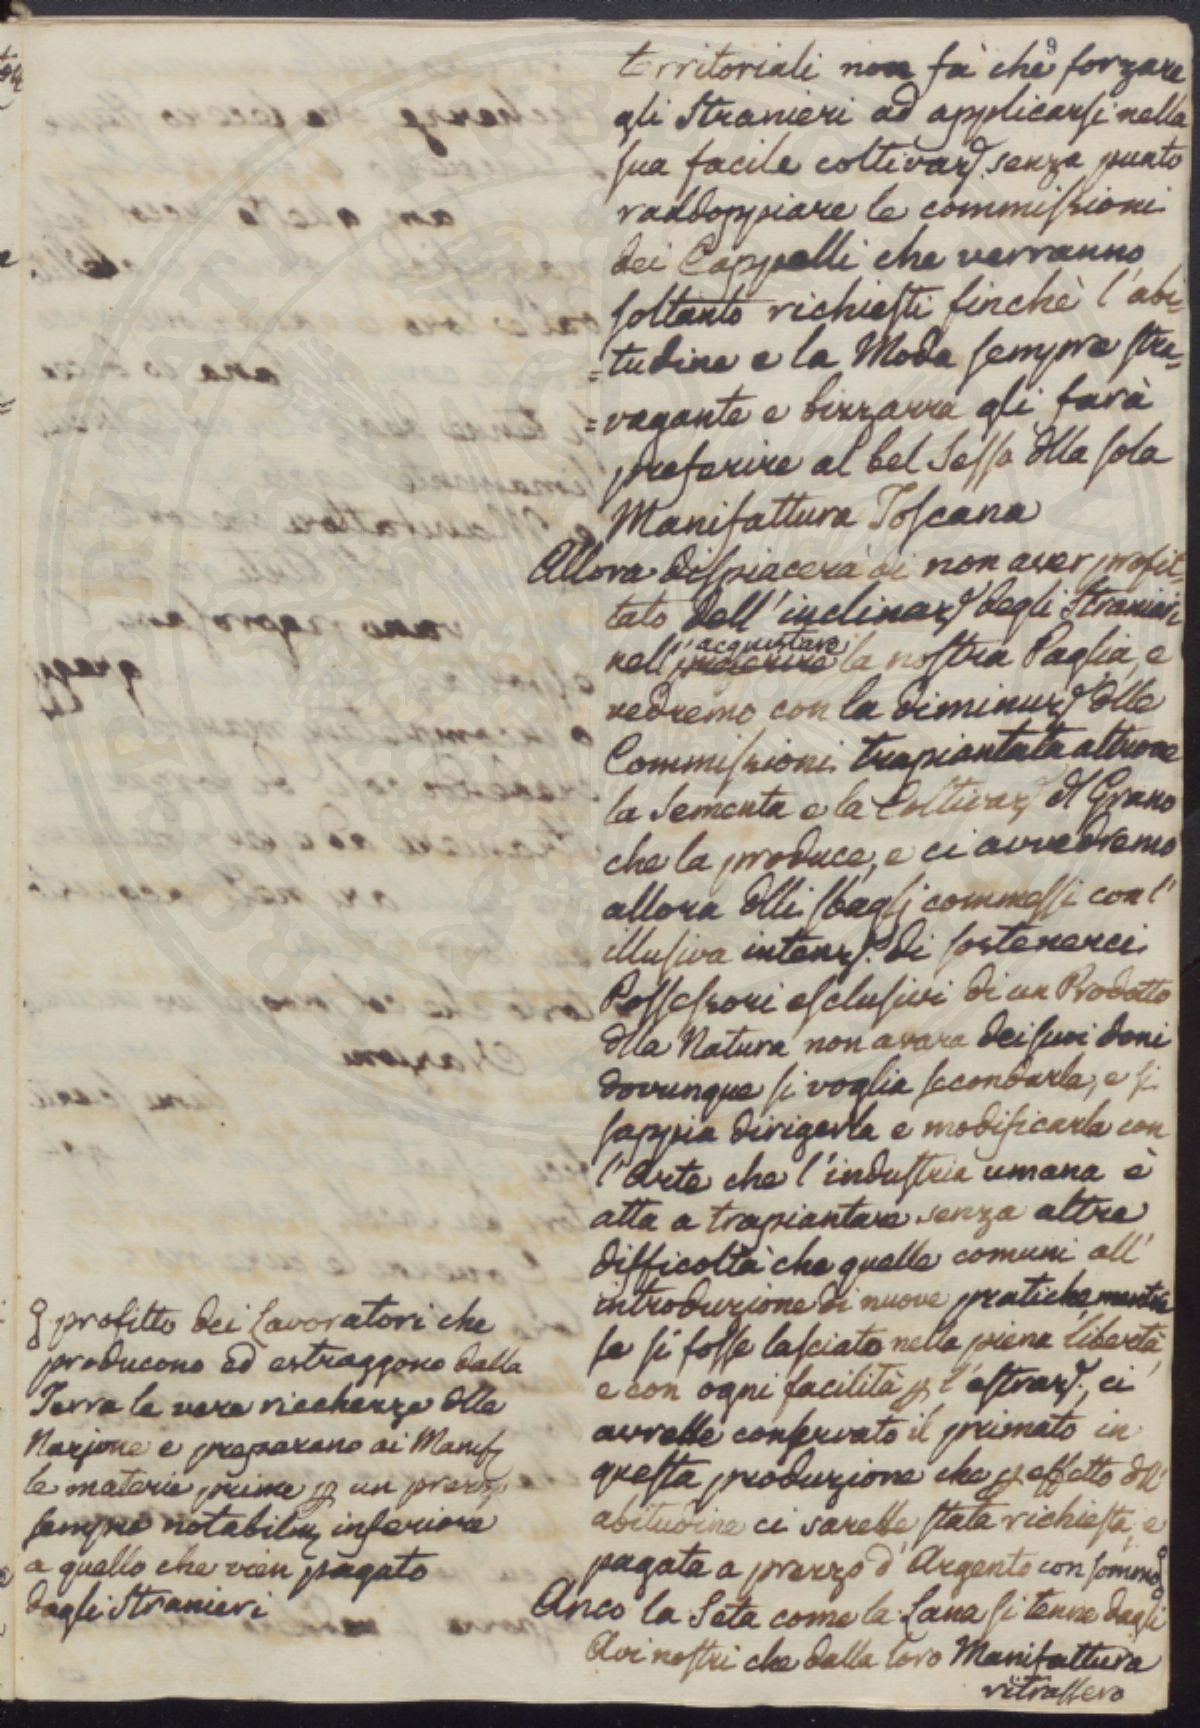 9
territoriali non fà che forzare
gli Stranieri ad applicarsi nella
sua facile coltivaz. senza punto
raddoppiare le commissioni
dei Cappelli che verranno
soltanto richiesti finchè l'abi-
=tudine e la Moda sempre stra-
=vagante e bizzarra gli farà
preferire al bel Sesso dlla sola
Manifattura Toscana
Allora dispiacerà di non aver profit-
tato dell'inclinaz. degli Stranieri
nell'acquistare la nostra Paglia, e
vedremo con la diminuz. dlle
Commissioni trapiantata altrove
la Sementa e la Coltivaz. dl Grano
che la produce, e ci avvedremo
allora dlli sbaglj commessi con l'
illusiva intenz. di sostenerci
Possessori esclusivi di un Prodotto
dlla Natura non avara dei suoi doni
dovunque si voglia secondarla, e si
sappia dirigerla e modificarla con
l'Arte che l'industria umana è
atta a trapiantare senza altre
difficoltà che quelle comuni all'
introduzione di nuove pratiche, mentre
se si fosse lasciato nella piena libertà,
e con ogni facilità p l'estraz., ci
avrebbe conservato il primato in
questa produzione che p effetto dll'
abitudine ci sarebbe stata richiesta, e
pagata a prezzo d'Argento con sommo
Anco la Seta come la Lana si tenne dagli
Avi nostri che dalla loro Manifattura
ritrassero
profitto dei Lavoratori che
producono ed estraggono dalla
Terra le vere ricchezze dlle
Nazione e preparano ai Manif.
le materie prime p un prezzo
sempre notabilm. inferiore
a quello che vien pagato
dagli Stranieri